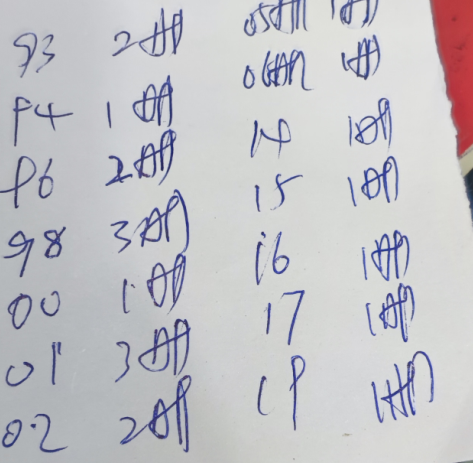 93 2册 05册 1册
94 1册 06册 1册
96 2册 14 1册
98 3册 15 1册
00 1册 16 1册
01 3册 17 1册
02 2册 19 1册